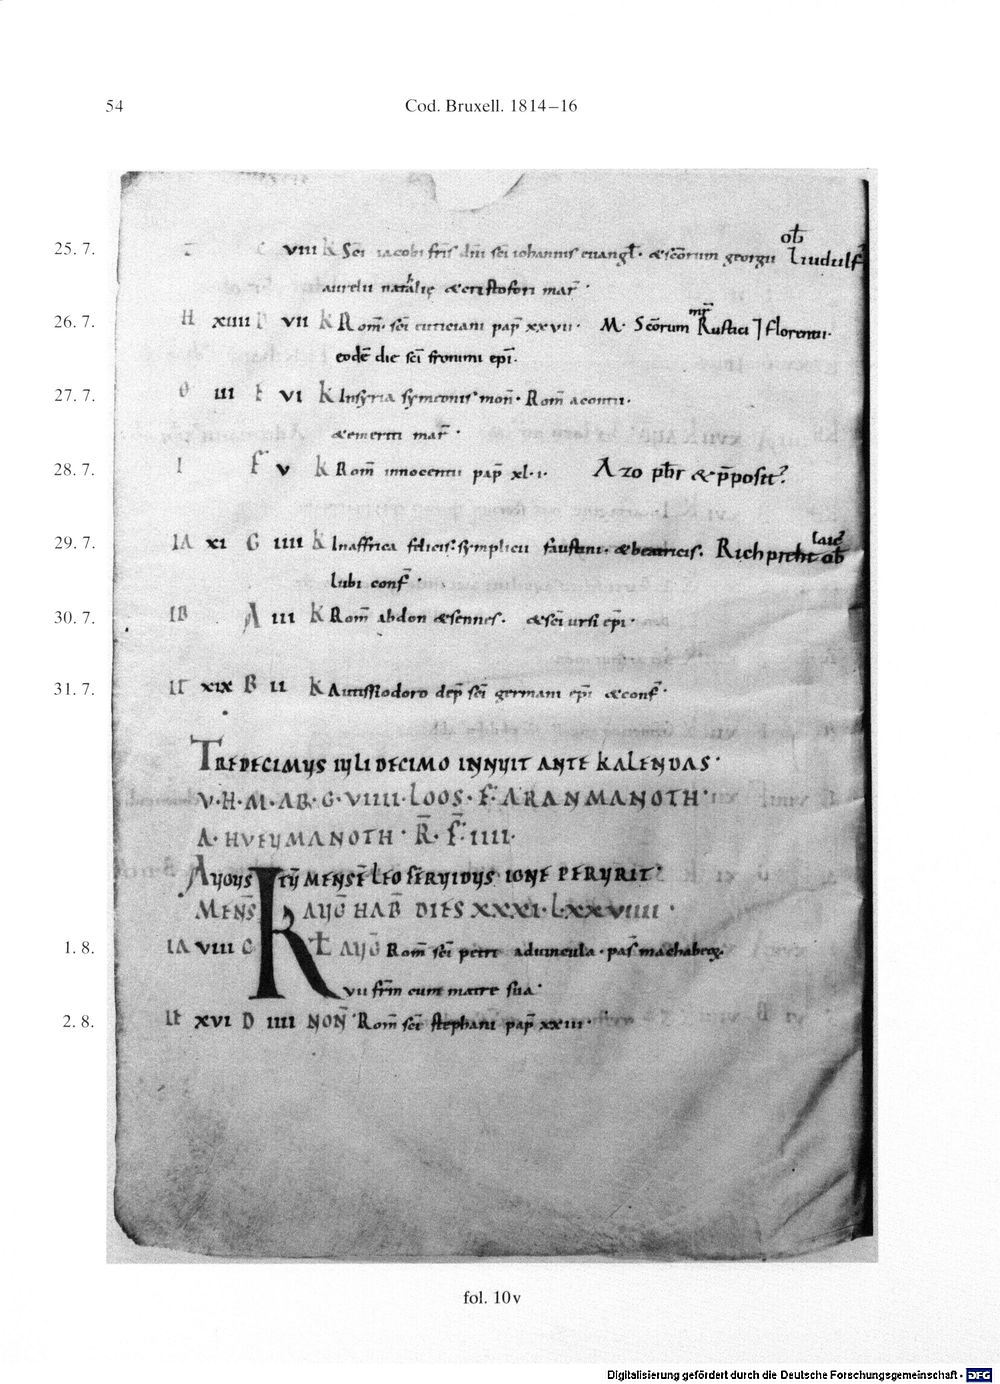 54
Cod. Bruxell. 1814–16
ob̄
25. 7. C VIII K Sc̄i iacobi fr̄is dn̄i sc̄i iohannis euangl̄. & sc̄orum georgii Liudulf
aurelii natalie & cristofori mar̄.
mr̄
26. 7. H XIIII D VII K Rom̄. sc̄i pap̄ xxvii. M. Sc̄orum Rustici ⁊ florentii.
eodē die sc̄i fronimi ep̄i.
27. 7. O III E VI K In syria symeonis mon̄. Rom̄ acontii.
& emeriti mar̄.
28. 7. I F V K Rom̄ innocentii pap̄ xl.i. Azo pb̄r & p̄posit?
29. 7. IA XI G IIII K In affrica felicis. symplicii faustini. & beatricis. Richpreht laic̄ ob̄
lubi conf̄.
30. 7. IB A III K Rom̄ abdon & sennes. & sc̄i ursi ep̄i.
31. 7. IΓ XIX B II K Autissiodoro dep̄ sc̄i germani ep̄i & conf̄.
TREDECIMUS IULI DECIMO INNUIT ANTE KALENDAS.
V. H. M. AB. G. VIIII. LOOS. F. ARANMANOTH.
A. HVEUMANOTH. R̄. F̄. IIII.
AUGUSTŪ MENSĒ LEO FERUIDUS IGNE PERURIT.
MENS̄ AUḠ HAB̄ DIES XXXI. LXXVIIII.
1. 8. IA VIII C KƗ AUḠ Rom̄ sc̄i petri ad uincula. pas̄ machabeoꝝ.
vii fr̄m cum matre sua.
2. 8. IE XVI D IIII NON̄ Rom̄ sc̄i stephani pap̄ xxiii.
fol. 10v
Digitalisierung gefördert durch die Deutsche Forschungsgemeinschaft - DFG